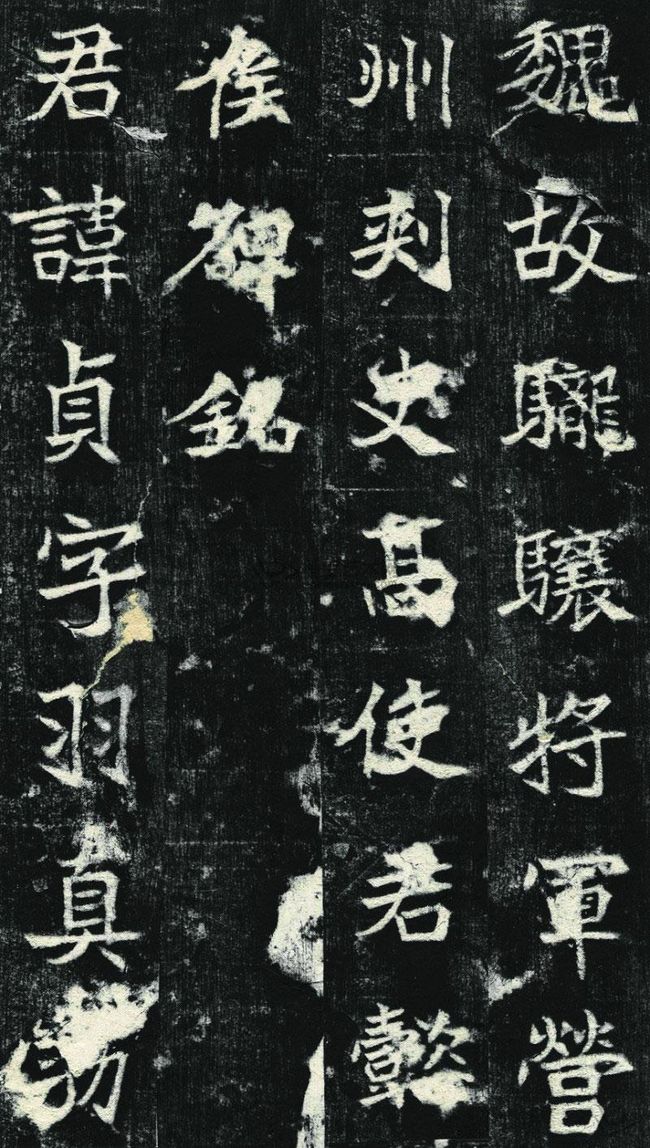 魏故䮾驤將軍營
州刺史高使君懿
侯碑銘
君諱貞字羽真勃